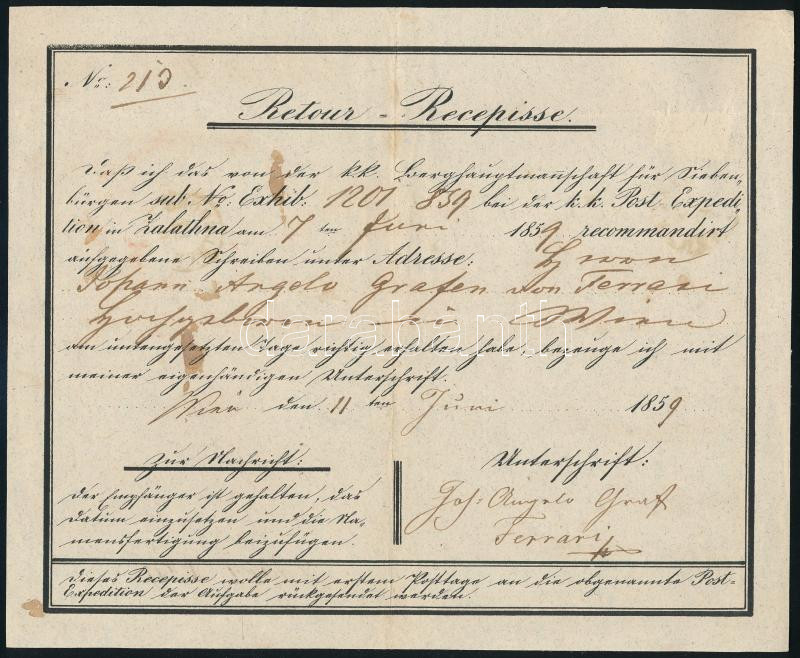 No: 213.
Retour-Recepisse.
Daß ich das von der k.k. Berghauptmannschaft für Sieben„
bürgen sub No: Exhib: 1201 859 bei der k.k. Post Expedi„
tion in Zalathna am 7 ten Juni 1859 recommandirt
aufgegebene Schreiben unter Adresse: Herrn
Johann Angelo Grafen von Ferrari
Hochgeboren in Wien
am untengesetzten Tage richtig erhalten habe, bezeuge ich mit
meiner eigenhändigen Unterschrift.
Wien den 11 ten Juni 1859
Zur Nachricht:
Der Empfänger ist gehalten, das
Datum einzusetzen und die Na„
mensfertigung beizufügen.
Unterschrift:
Joh: Angelo Graf
Ferrari
Dieses Recepisse wolle mit erstem Posttage an die obgenannte Post-
Expedition der Aufgabe rückgesendet werden.
darabanth